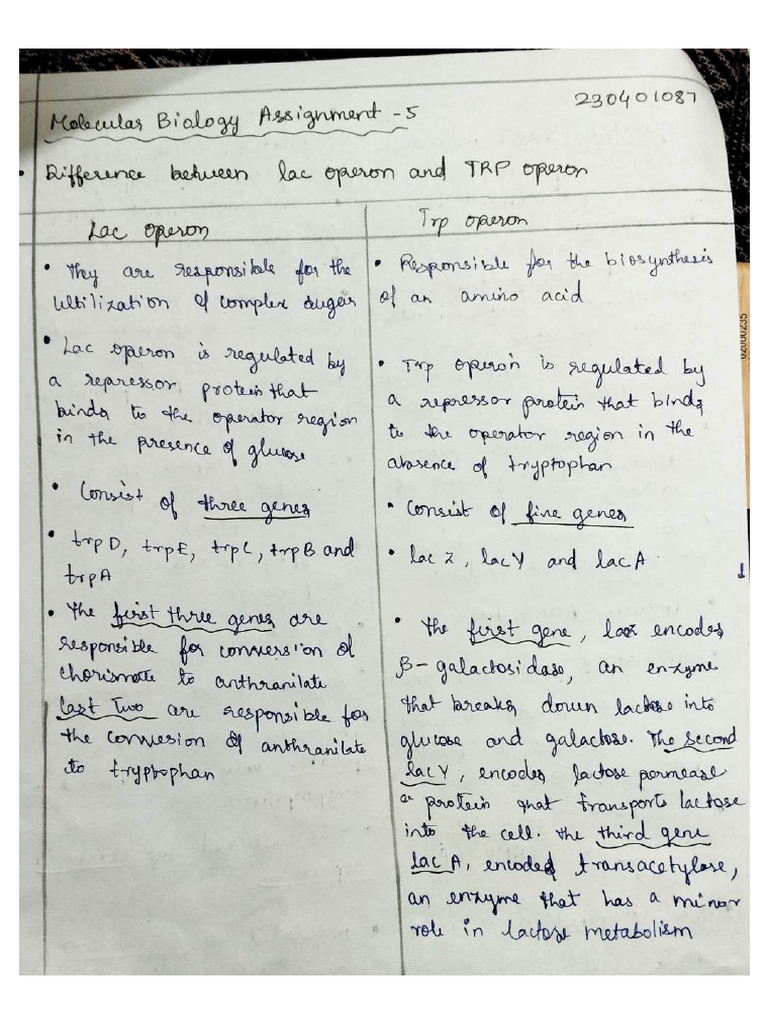 Molecular Biology Assignment - 5
230401087
• Difference between lac operon and TRP operon
Lac operon
• They are responsible for the
ultilization of complex sugar
• Lac operon is regulated by
a repressor protein that
binds to the operator region
in the presence of glucose
• Consist of three genes
• trp D, trp E, trp C, trp B and
trp A
• The first three genes are
responsible for conversion of
chorismate to anthranilate
Last Two are responsible for
the convesion of anthranilate
to tryptophan
Trp operon
• Responsible for the biosynthesis
of an amino acid
• Trp operon is regulated by
a repressor protein that binds
to the operator region in the
absence of tryptophan
• Consist of five genes
• lac Z, lac Y and lac A
• The first gene, lacz encodes
β-galactosidase, an enzyme
that breaks down lactose into
glucose and galactose. The second
lac Y, encodes lactose permease
a protein that transports lactose
into the cell. The third gene
lac A, encoded transacetylase,
an enzyme that has a minor
role in lactose metabolism
02000235